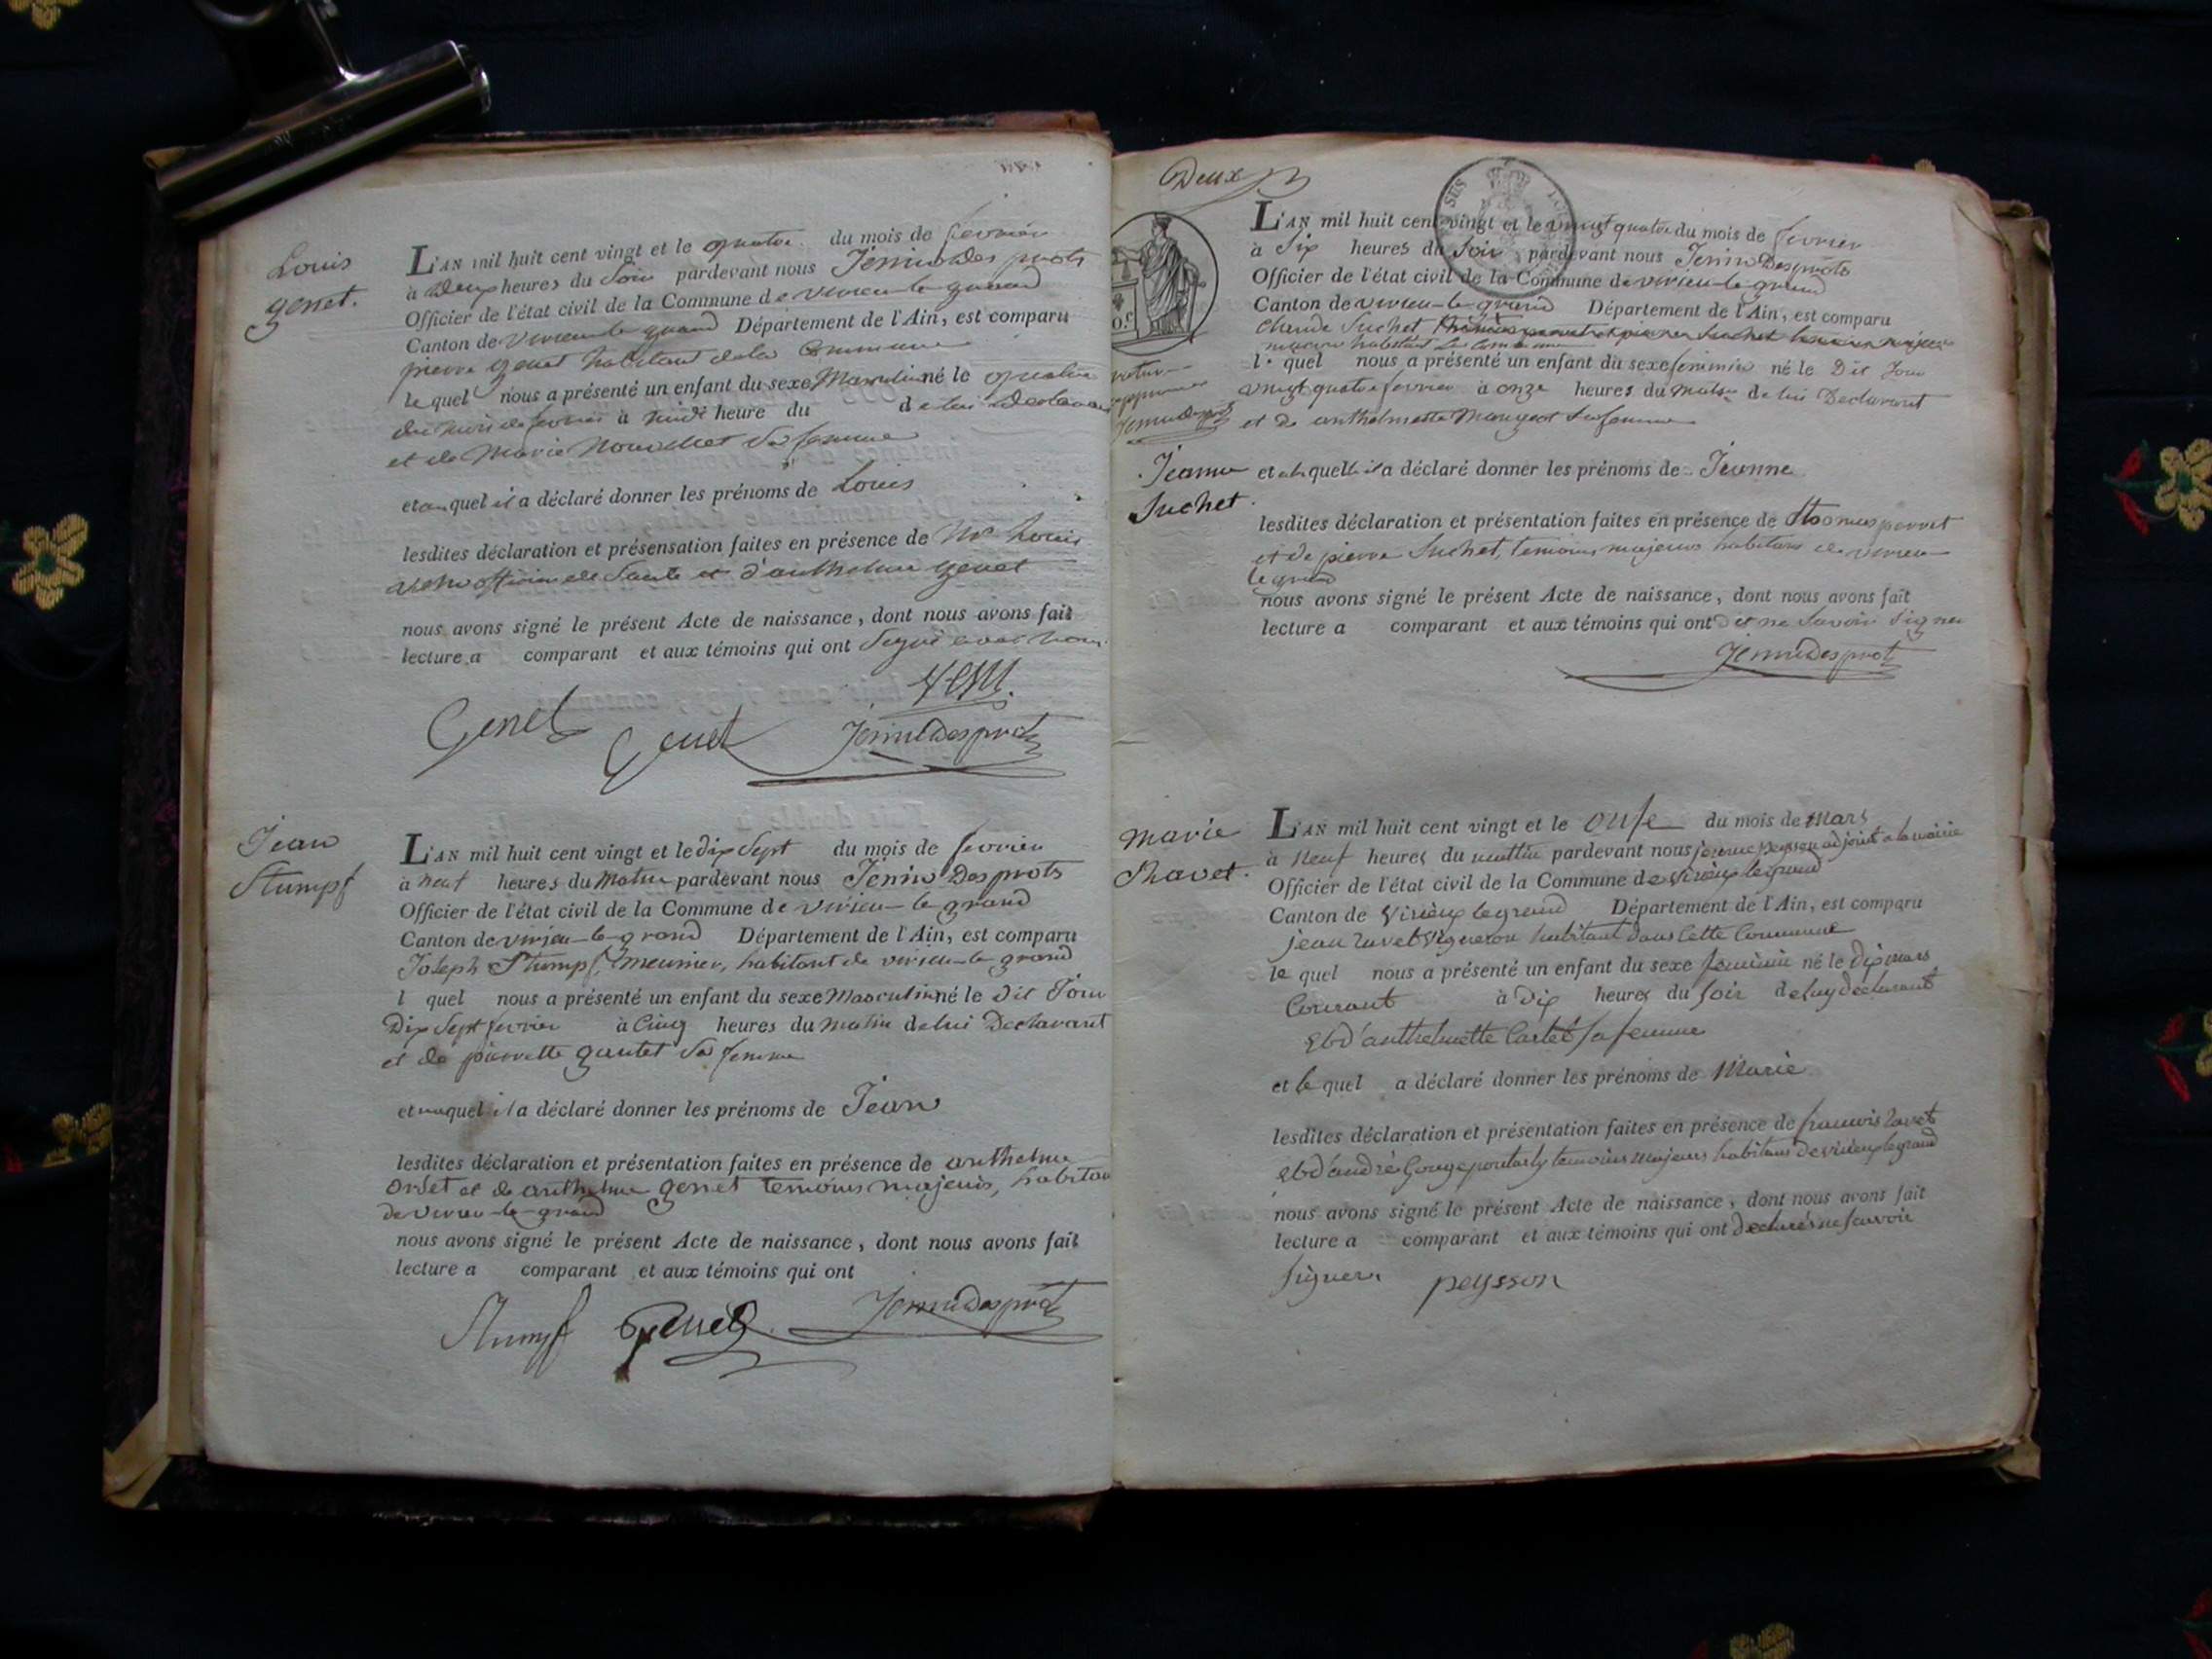 Louis
genet.
L'AN mil huit cent vingt et le quatre du mois de fevrier
à Deux heures du Soir pardevant nous Jenin Des prots
Officier de l'état civil de la Commune de virieu-le-grand
Canton de Virieu-le-grand Département de l'Ain, est comparu
pierre genet habitant de la Commune
le quel nous a présenté un enfant du sexe Masculin né le quatre
du mois de fevrier à midi heure du de lui Declarant
et de Marie Sa femme
et au quel il a déclaré donner les prénoms de Louis
lesdites déclaration et présensation faites en présence de Mr Louis
officier de Santé et d'anthelme genet
nous avons signé le présent Acte de naissance, dont nous avons fait
lecture a comparant et aux témoins qui ont Signé avec nous
Genet Genet Jenin Desprots
Jean
Stumpf
L'AN mil huit cent vingt et le dix Sept du mois de fevrier
à neuf heures du Matin pardevant nous Jenin Des prots
Officier de l'état civil de la Commune de virieu-le-grand
Canton de virieu-le-grand Département de l'Ain, est comparu
Joseph Stumpf, meunier, habitant de virieu-le-grand
l quel nous a présenté un enfant du sexe Masculin né le Dit Jour
Dix Sept fevrier à Cinq heures du Matin de lui Declarant
et de pierrette gautet Sa femme
et auquel il a déclaré donner les prénoms de Jean
lesdites déclaration et présentation faites en présence de anthelme
ordet et de anthelme genet temoins majeurs, habitan
de virieu-le-grand
nous avons signé le présent Acte de naissance, dont nous avons fait
lecture a comparant et aux témoins qui ont
Stumpf Genet Jenin Desprots
Deux
L'AN mil huit cent vingt et le vingt quatre du mois de fevrier
à Six heures du Soir pardevant nous Jenin Desprots
Officier de l'état civil de la Commune de virieu-le-grand
Canton de virieu-le-grand Département de l'Ain, est comparu
Claude Suchet
l. quel nous a présenté un enfant du sexe feminin né le Dit Jour
vingt quatre fevrier à onze heures du Matin de lui Declarant
et de anthelmette Mangeot Sa femme
Jeanne
Suchet.
et à la quelle il a déclaré donner les prénoms de Jeanne
lesdites déclaration et présentation faites en présence de thomas perret
et de pierre Suchet, temoins majeurs habitans de virieu-
le grand
nous avons signé le présent Acte de naissance, dont nous avons fait
lecture a comparant et aux témoins qui ont Dit ne Savoir Signer
Jenin Desprots
Marie
Ravet.
L'AN mil huit cent vingt et le onse du mois de Mars
à Neuf heures du mattin pardevant nous peysson adjoint a la mairie
Officier de l'état civil de la Commune de Virieux legrand
Canton de Virieux legrand Département de l'Ain, est comparu
jean ravet vigneron habitant dans Cette Commune
le quel nous a présenté un enfant du sexe feminin né le dix mars
Courant à dix heures du soir de luy declarant
Et d'anthelmette Cartet sa femme
et le quel a déclaré donner les prénoms de Marie
lesdites déclaration et présentation faites en présence de francois ravet
Et d'andré temoins majeurs habitans de virieux legrand
nous avons signé le présent Acte de naissance, dont nous avons fait
lecture a comparant et aux témoins qui ont declarés ne scavoir
signer. peysson